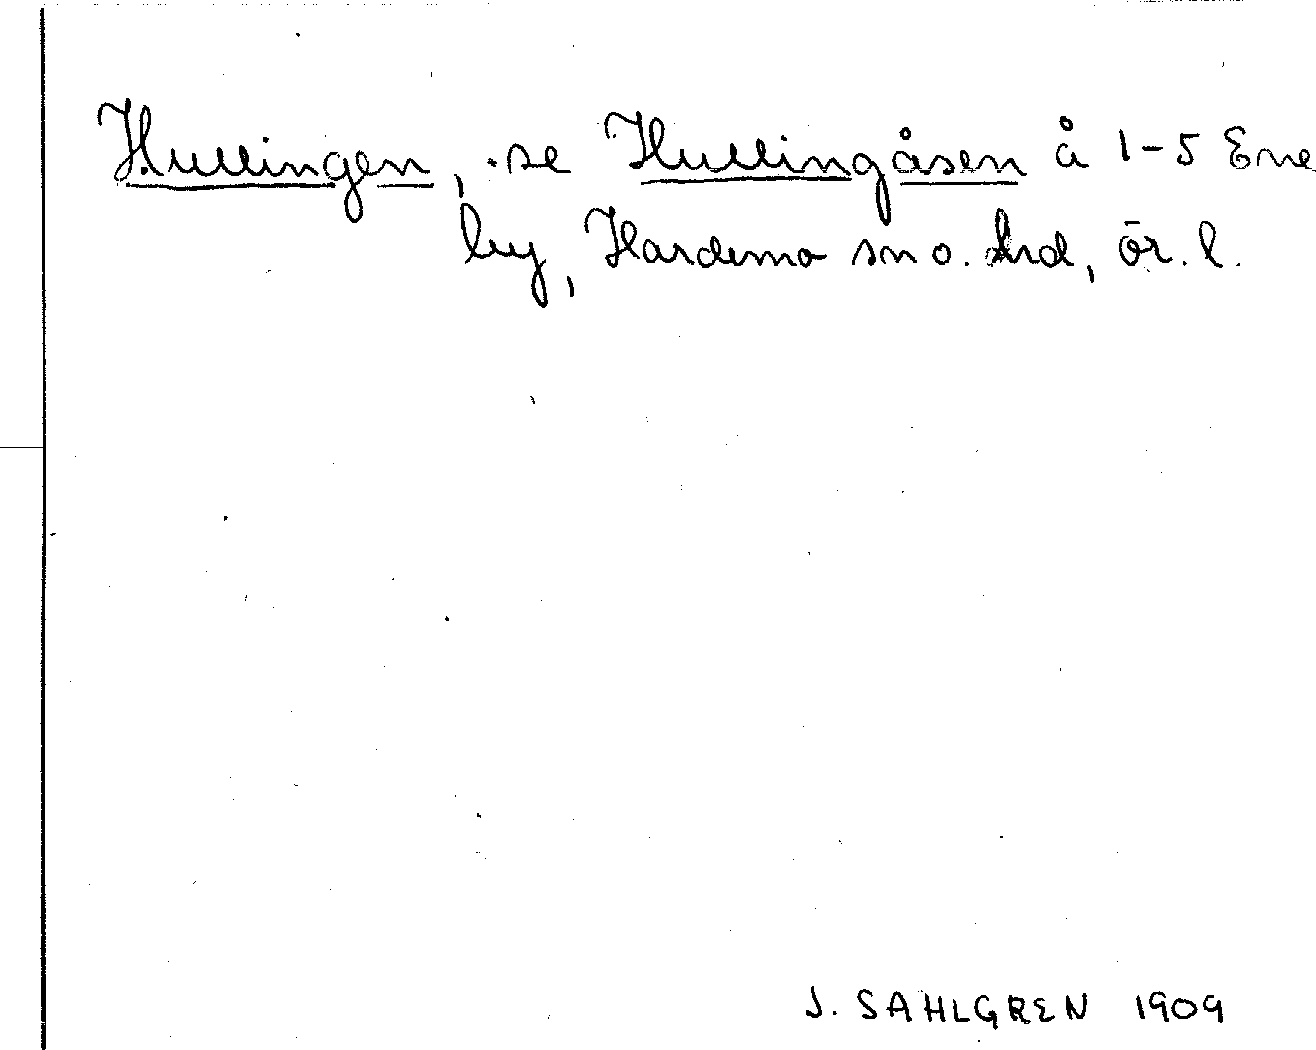 Hullingen, se Hullingåsen å 1-5 Ene
by, Hardemo sn o. hd, ör. l.
J. SAHLGREN 1909